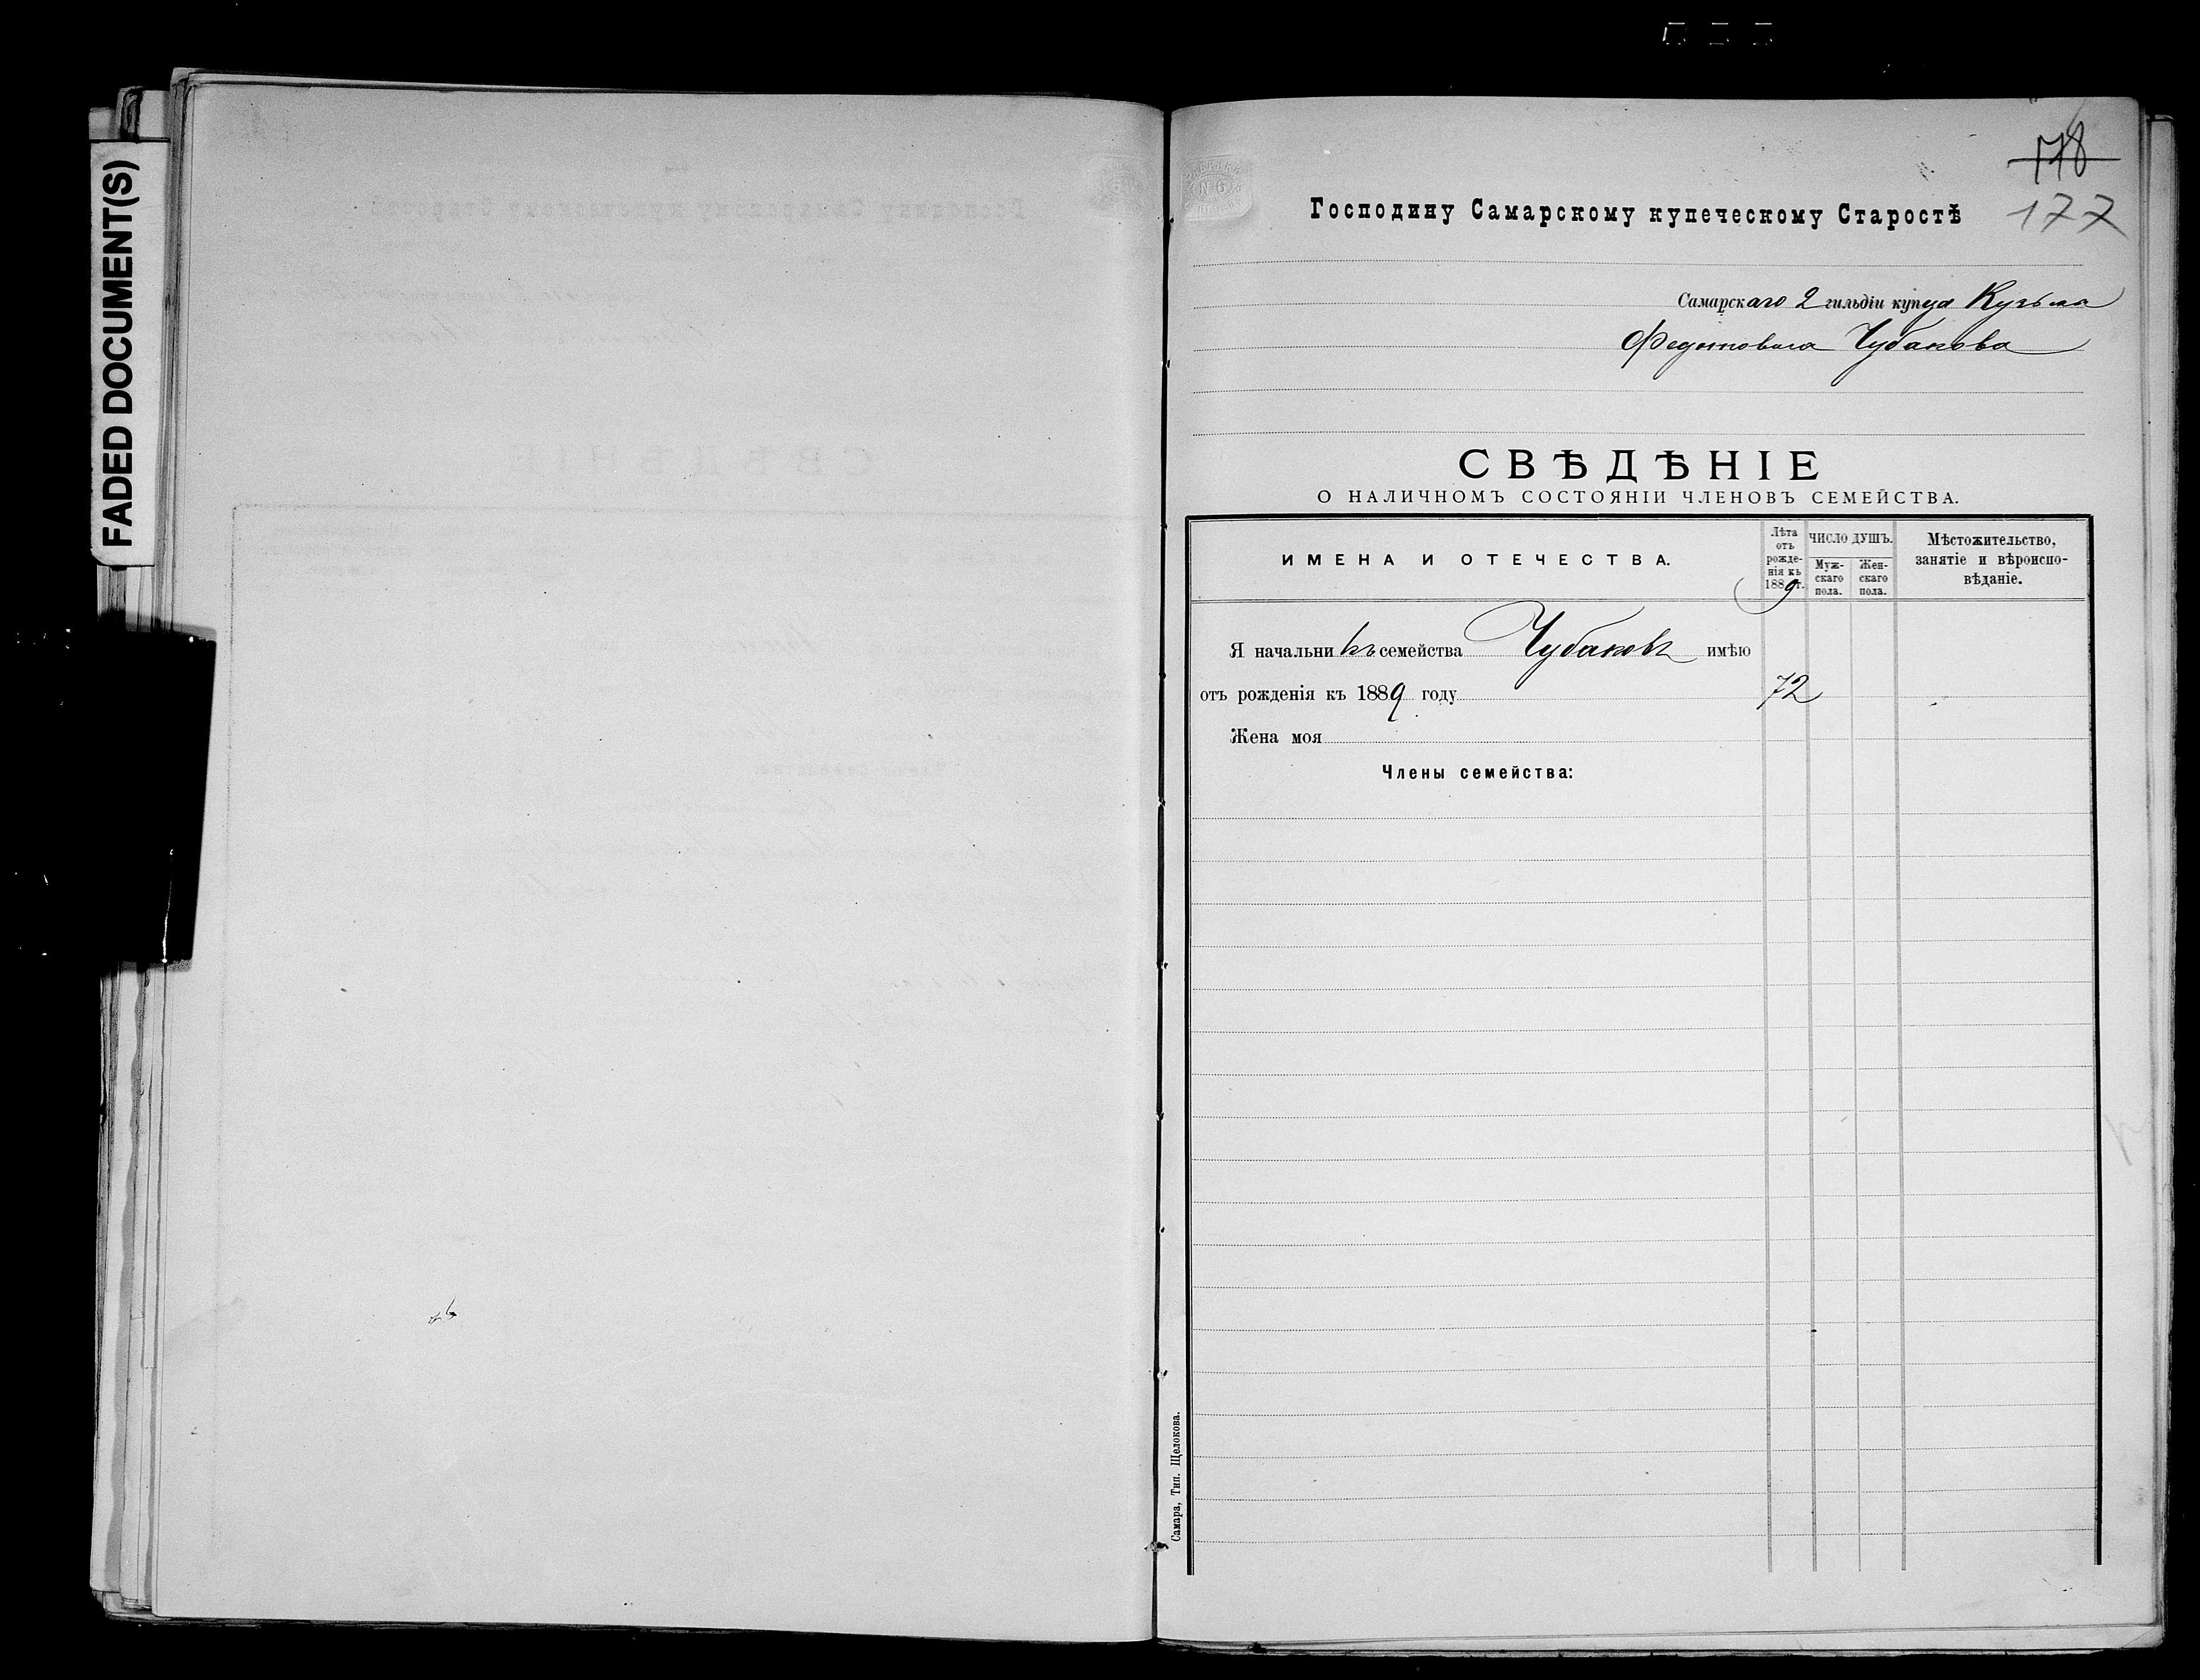 FADED DOCUMENT(S)
178
177
Господину Самарскому купеческому Старостѣ
Самарскаго 2 гильдіи купца Кузьма
Федотовича Чубакова
СВѢДѢНІЕ
О НАЛИЧНОМЪ СОСТОЯНІИ ЧЛЕНОВЪ СЕМЕЙСТВА.
ИМЕНА И ОТЕЧЕСТВА.
Лѣта
отъ
рожде-
нія къ
1889 г.
ЧИСЛО ДУШЪ.
Муж-
скаго
пола.
Жен-
скаго
пола.
Мѣстожительство,
занятіе и вѣроиспо-
вѣданіе.
Я начальникъ семейства Чубаковъ имѣю
отъ рожденія къ 1889 году 72
Жена моя
Члены семейства:
Самара, Тип. Щелокова.